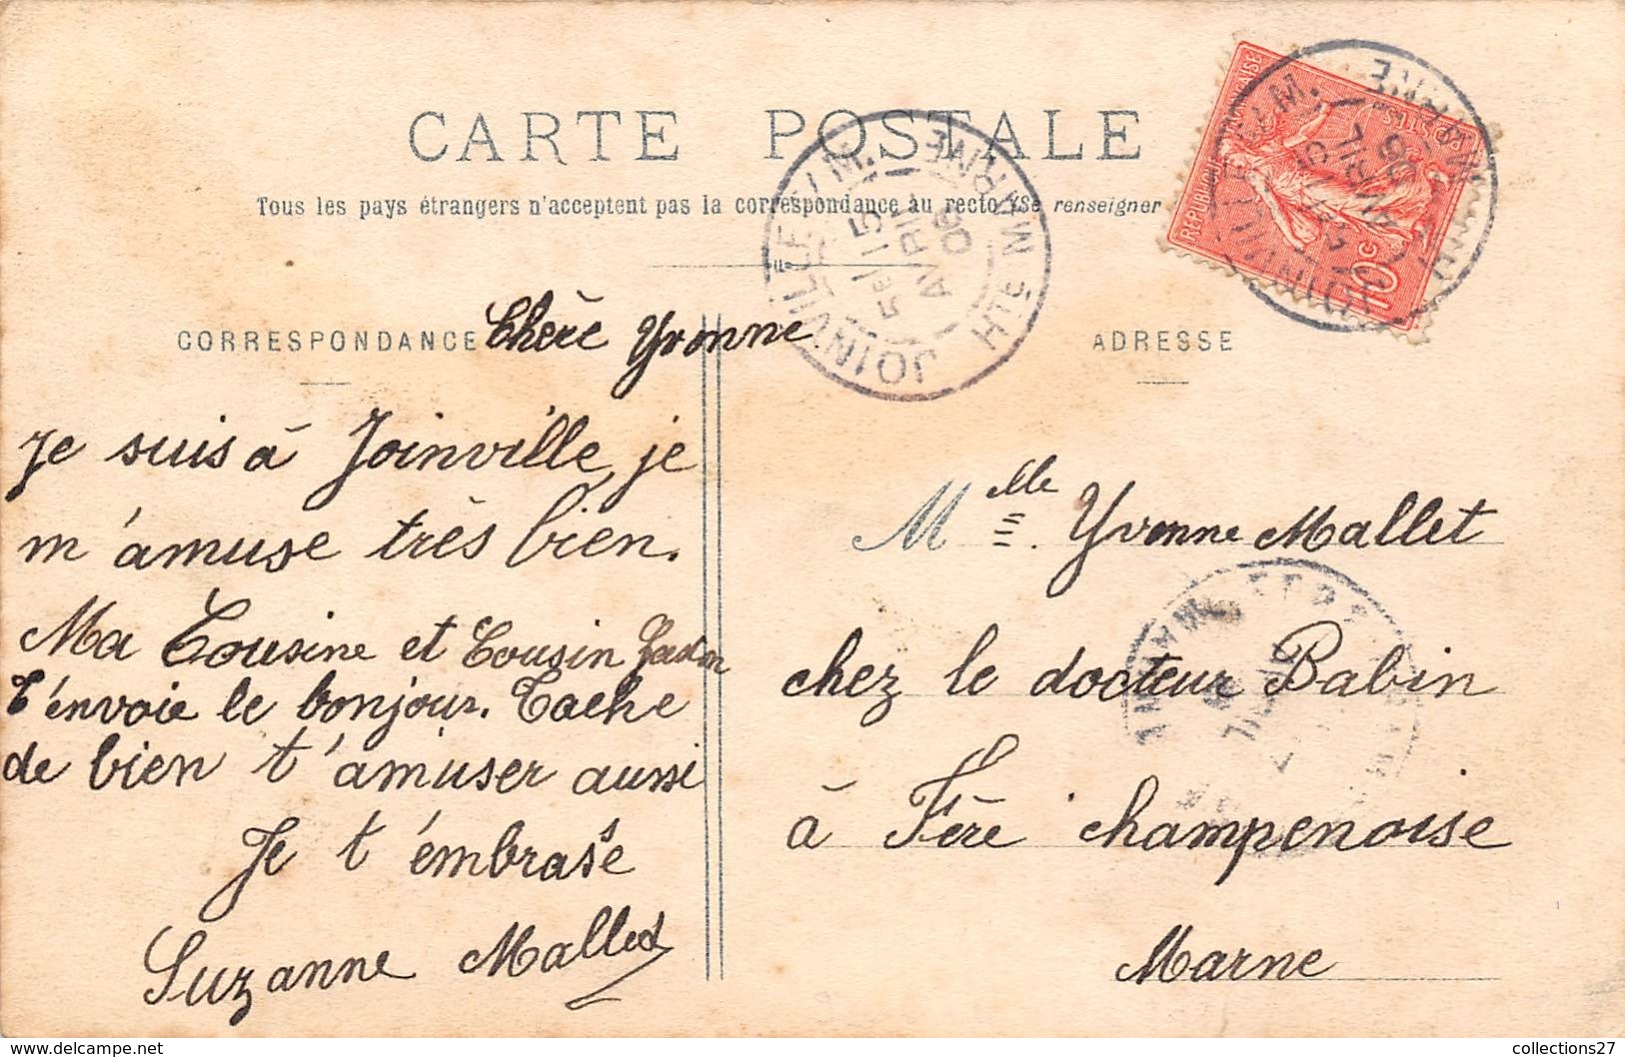 CARTE POSTALE
Tous les pays étrangers n'acceptent pas la correspondance au recto (Se renseigner
CORRESPONDANCE
Chère Yvonne
Je suis à Joinville, je
m'amuse très bien.
Ma Cousine et Cousin
t'énvoie le bonjour. Tache
de bien t'amuser aussi
Je t'émbrasse
Suzanne Mallet
ADRESSE
Mlle. Yvonne Mallet
chez le docteur Babin
à Fère champenoise
Marne
JOINVILLE S/ M. HTE MARNE
15
AVRIL
06
REPUBLIQUE FRANCAISE
POSTES
10c
collections27